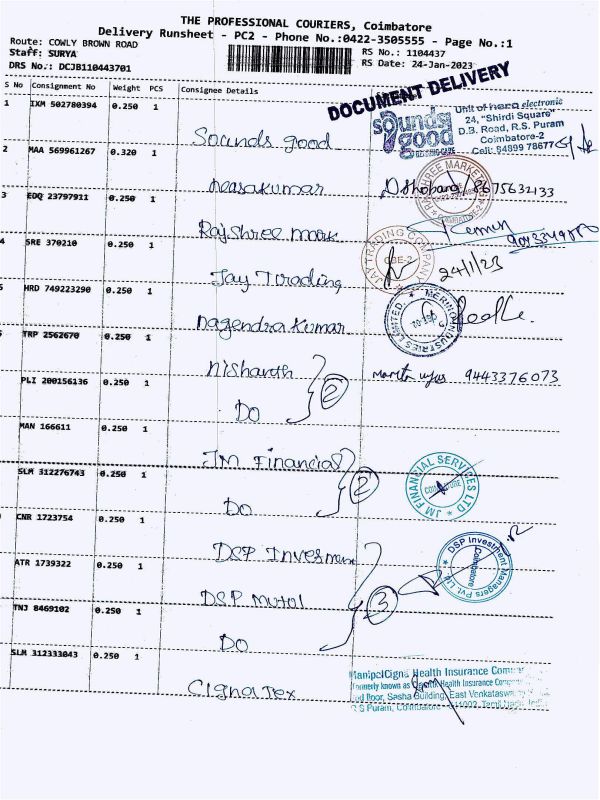 THE PROFESSIONAL COURIERS, Coimbatore
Delivery Runsheet - PC2 - Phone No.:0422-3505555 - Page No.:1
Route: COWLY BROWN ROAD
RS No.: 1104437
Staff: SURYA
RS Date: 24-Jan-2023
DRS No.: DCJB110443701
S No Consignment No Weight PCS Consignee Details
DOCUMENT DELIVERY
1 IXM 502780394 0.250 1
Sounds good
sounds good
HEARING CARE
Unit of hera electronic
24, "Shirdi Square"
D.B. Road, R.S. Puram
Coimbatore-2
Cell: 84899 78677
2 MAA 569961267 0.320 1
neasakumar
8675632133
3 EDQ 23797911 0.250 1
Rajshree mark
4 SRE 370210 0.250 1
Jay Trading
JAY TRADING COMPANY
CBE-2
24/1/23
5 HRD 749223290 0.250 1
nagendrakumar
TRP 2562670 0.250 1
nishanth
9443376073
PLI 200156136 0.250 1
DO
2
MAN 166611 0.250 1
JM Financial
SLM 312276743 0.250 1
DO
2
JM FINANCIAL SERVICES LTD
COIMBATORE
CNR 1723754 0.250 1
DSP Invesment
DSP Investment Managers Pvt. Ltd.
Coimbatore
ATR 1739322 0.250 1
DSP Mutal
3
TNJ 8469102 0.250 1
DO
SLM 312333043 0.250 1
Cigna Tex
ManipalCigna Health Insurance
formerly known as Health Insurance
Floor, Sasha Building, East
R S Puram, Coimbatore